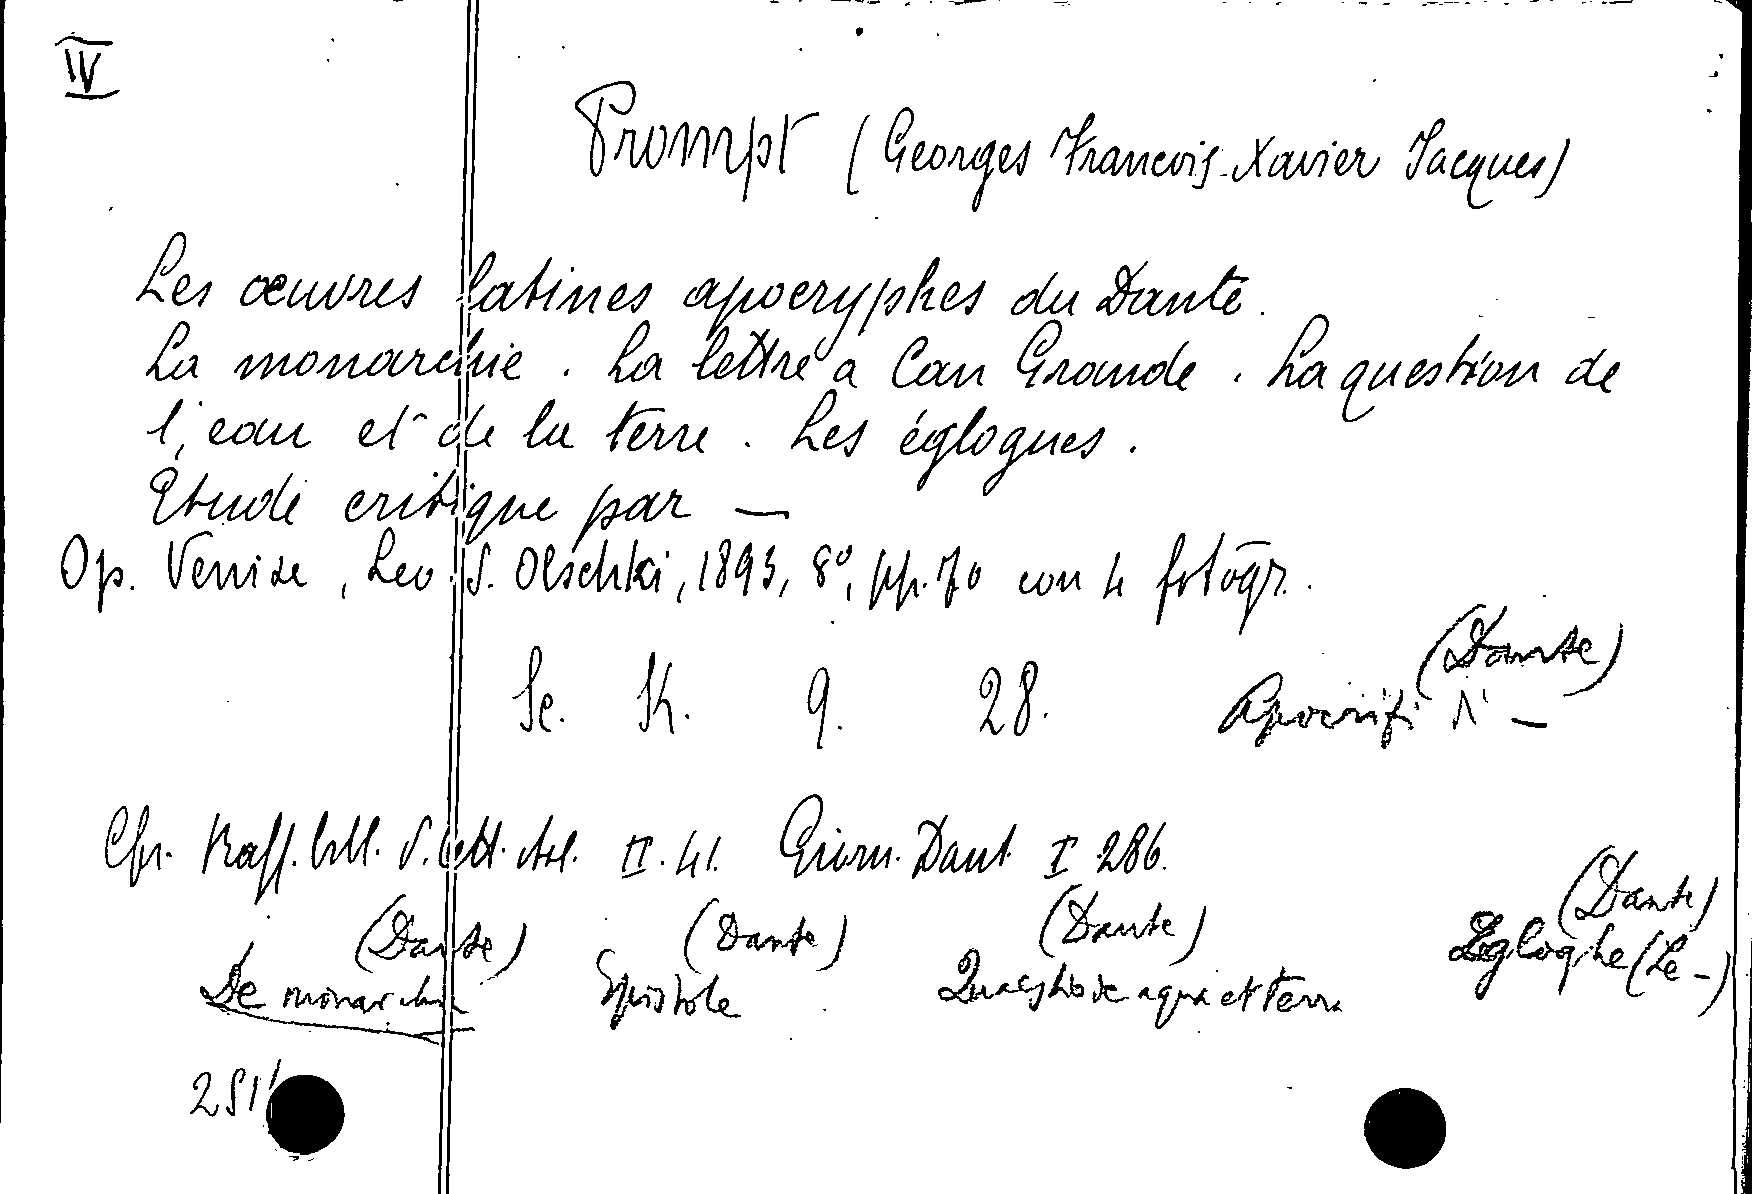 IV
Prompt (Georges Francois-Xavier Jacques)
Les œuvres latines apocryphes du Dante.
La monarchie. La lettre a Can Grande. La question de
l'eau et de la terre. Les églogues.
Etude critique par —
Op. Venise, Leo S. Olschki, 1893, 8°, pp. 70 con 4 fotogr.
(Dante)
Sc. K. 9. 28. Apocrifi —
Cfr. Rass. bibl. d. lett. ital. II. 41. Giorn. Dant. I 286.
(Dante) (Dante) (Dante) (Dante)
De monarchia Epistole Quaestio de aqua et terra Egloghe (Le -)
251